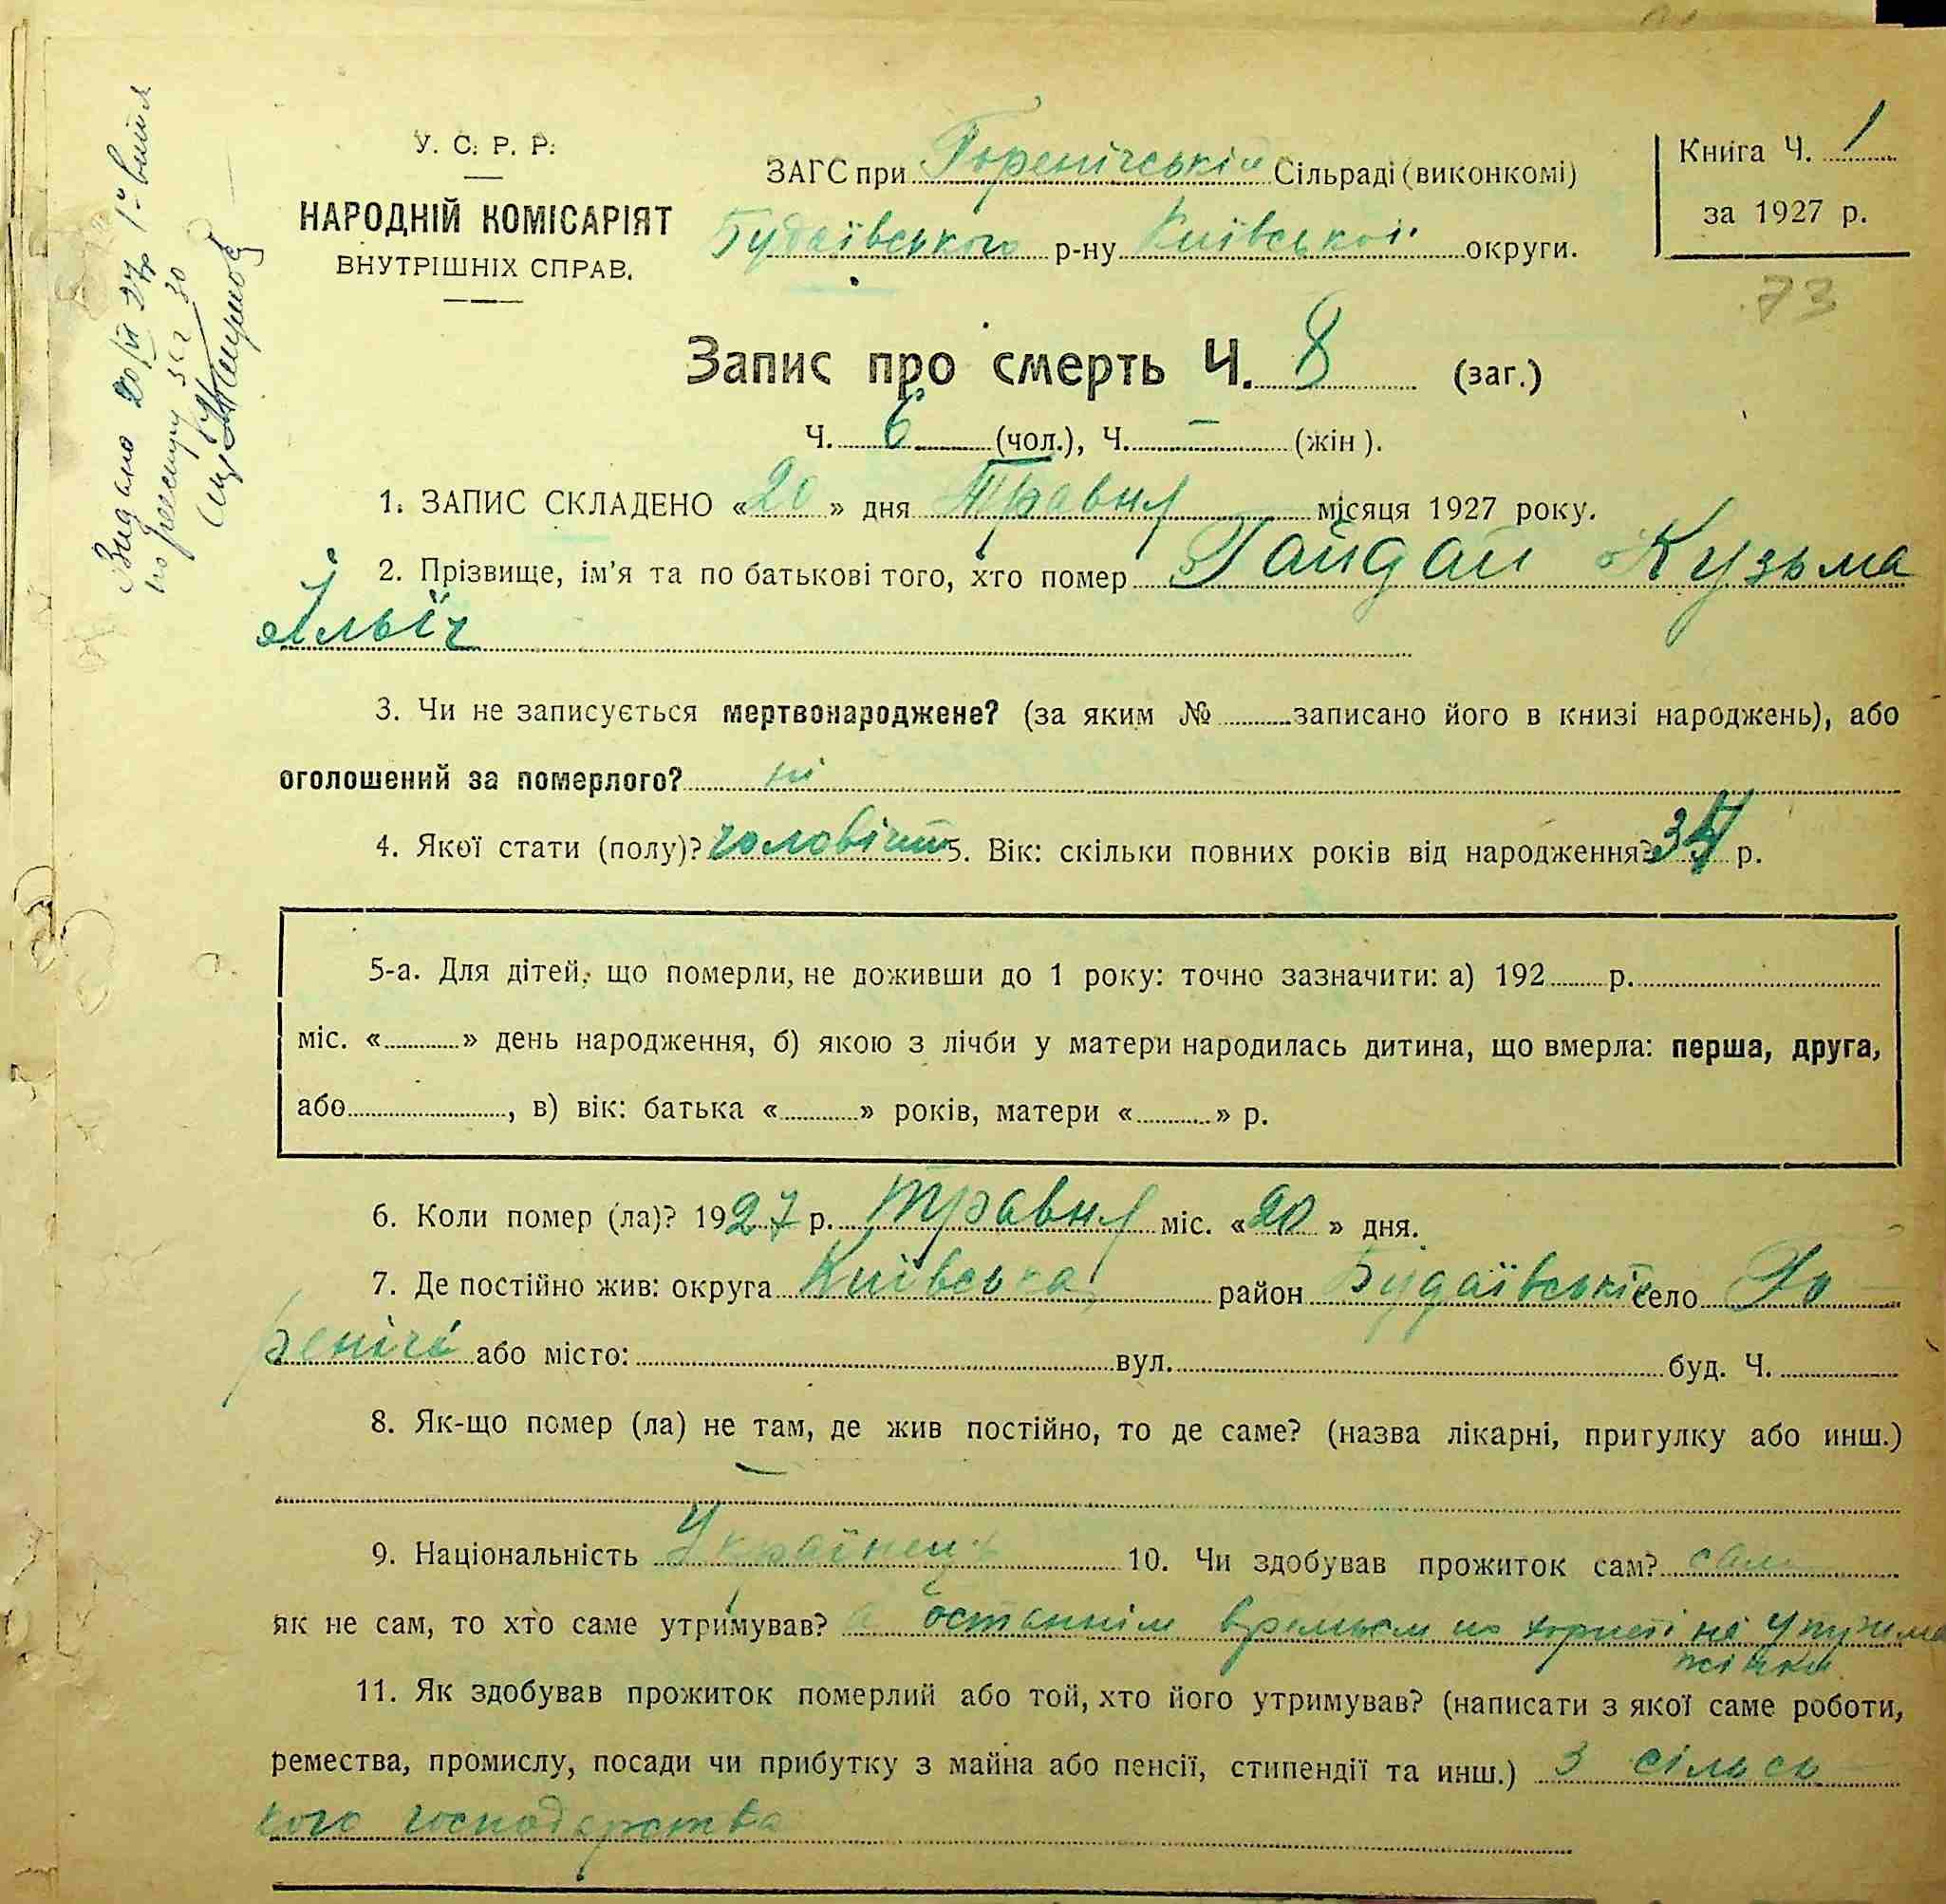 У. С. Р. Р.
НАРОДНІЙ КОМІСАРІЯТ
ВНУТРІШНІХ СПРАВ.
ЗАГС при Горенічській Сільраді (виконкомі)
Будаївського р-ну Київської округи.
Книга Ч. 1
за 1927 р.
73
Видано 20/VI 27 р
Запис про смерть Ч. 8 (заг.)
Ч. 6 (чол.), Ч. — (жін).
1. ЗАПИС СКЛАДЕНО «20» дня Травня місяця 1927 року.
2. Прізвище, ім'я та по батькові того, хто помер Гайдай Кузьма
Ільїч
3. Чи не записується мертвонароджене? (за яким № записано його в книзі народжень), або
оголошений за померлого? ні
4. Якої стати (полу)? 5. Вік: скільки повних років від народження? р.
5-а. Для дітей, що померли, не доживши до 1 року: точно зазначити: а) 192 р.
міс. « » день народження, б) якою з лічби у матери народилась дитина, що вмерла: перша, друга,
або , в) вік: батька « » років, матери « » р.
6. Коли помер (ла)? 1927 р. Травня міс. «20» дня.
7. Де постійно жив: округа Київська район Будаївській село Го
реничі або місто: вул. буд. Ч.
8. Як-що помер (ла) не там, де жив постійно, то де саме? (назва лікарні, пригулку або инш.)
—
9. Національність Українець 10. Чи здобував прожиток сам? сам
як не сам, то хто саме утримував? а останнім
жінки
11. Як здобував прожиток померлий або той, хто його утримував? (написати з якої саме роботи,
ремества, промислу, посади чи прибутку з майна або пенсії, стипендії та инш.) З сільсь
кого господарства